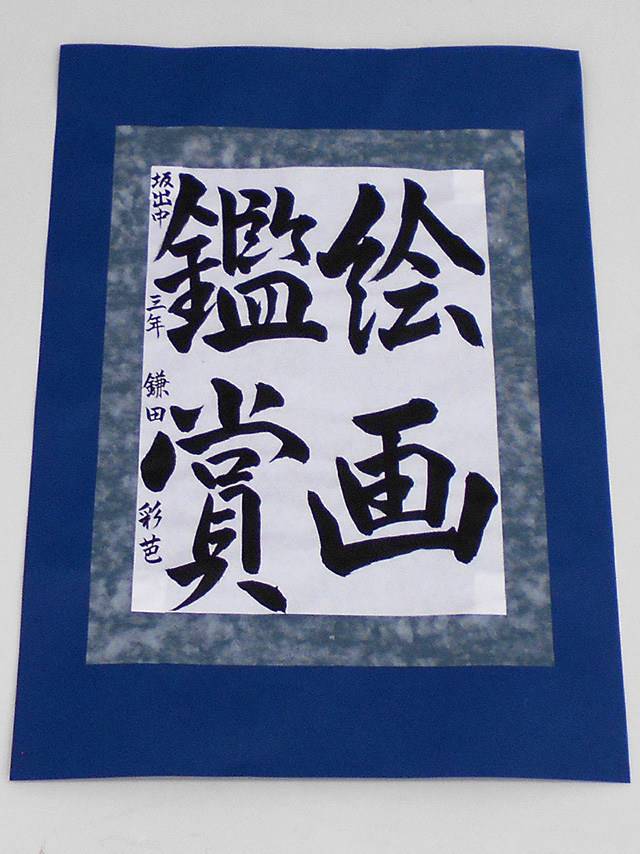 絵画
鑑賞
坂出中 三年 鎌田 彩芭